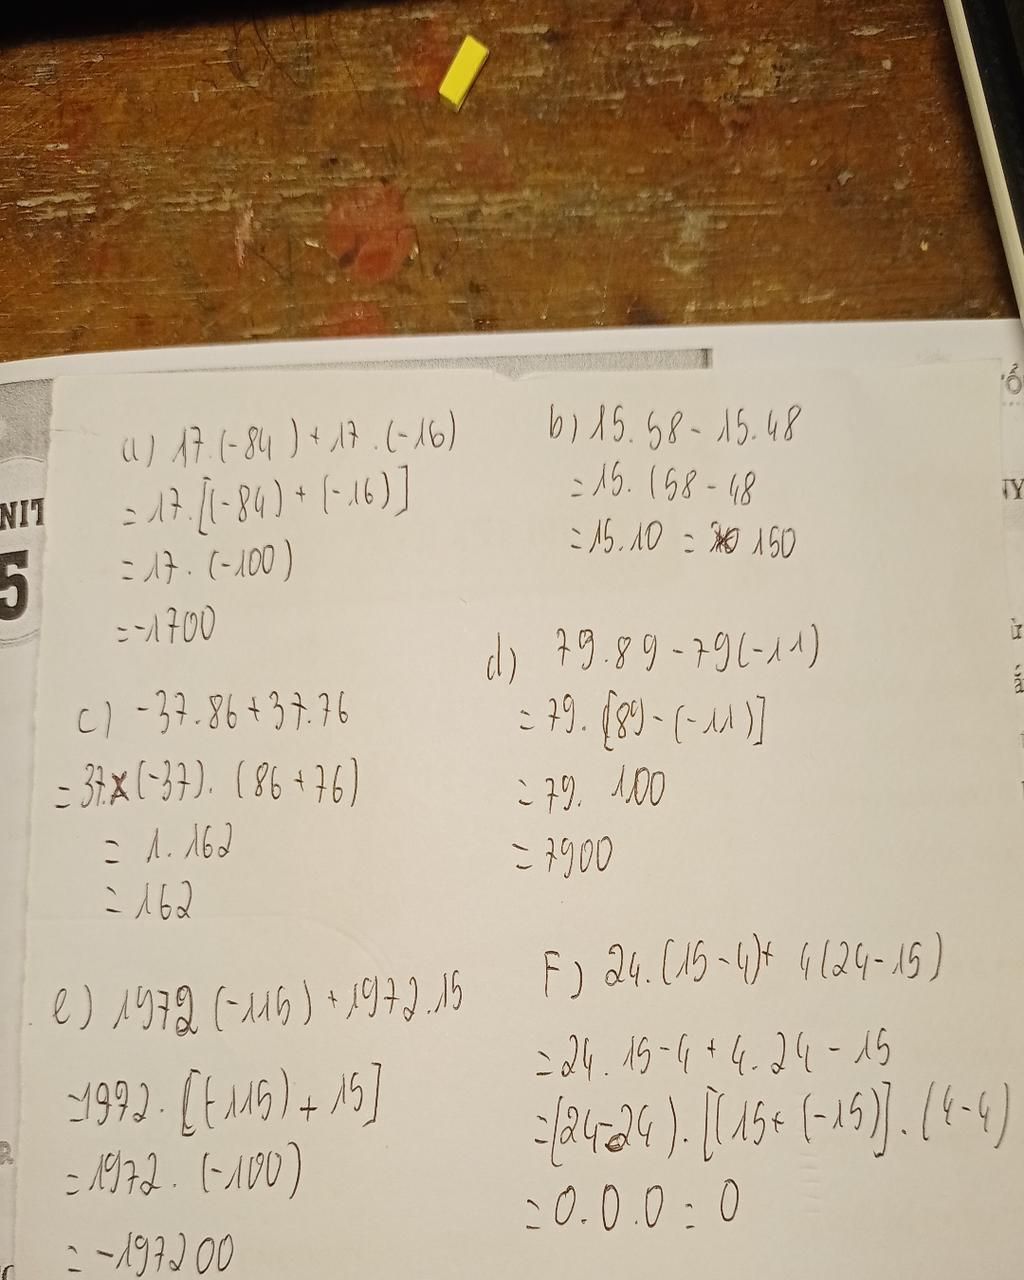 a) 17.(-84) + 17.(-16)
= 17.[(-84) + (-16)]
= 17.(-100)
= -1700
b) 15.58 - 15.48
= 15.(58 - 48
= 15.10 = 150
c) -37.86 + 37.76
= 37.(-37).(86 + 76)
= 1.162
= 162
d) 79.89 - 79(-11)
= 79.[89 - (-11)]
= 79. 100
= 7900
e) 1972(-115) + 1972.15
= 1972.[(-115) + 15]
= 1972.(-100)
= -197200
F) 24.(15 - 4) + 4(24 - 15)
= 24.15 - 4 + 4.24 - 15
= (24 - 24).[(15 + (-15)].(4 - 4)
= 0.0.0 = 0
NIT
5